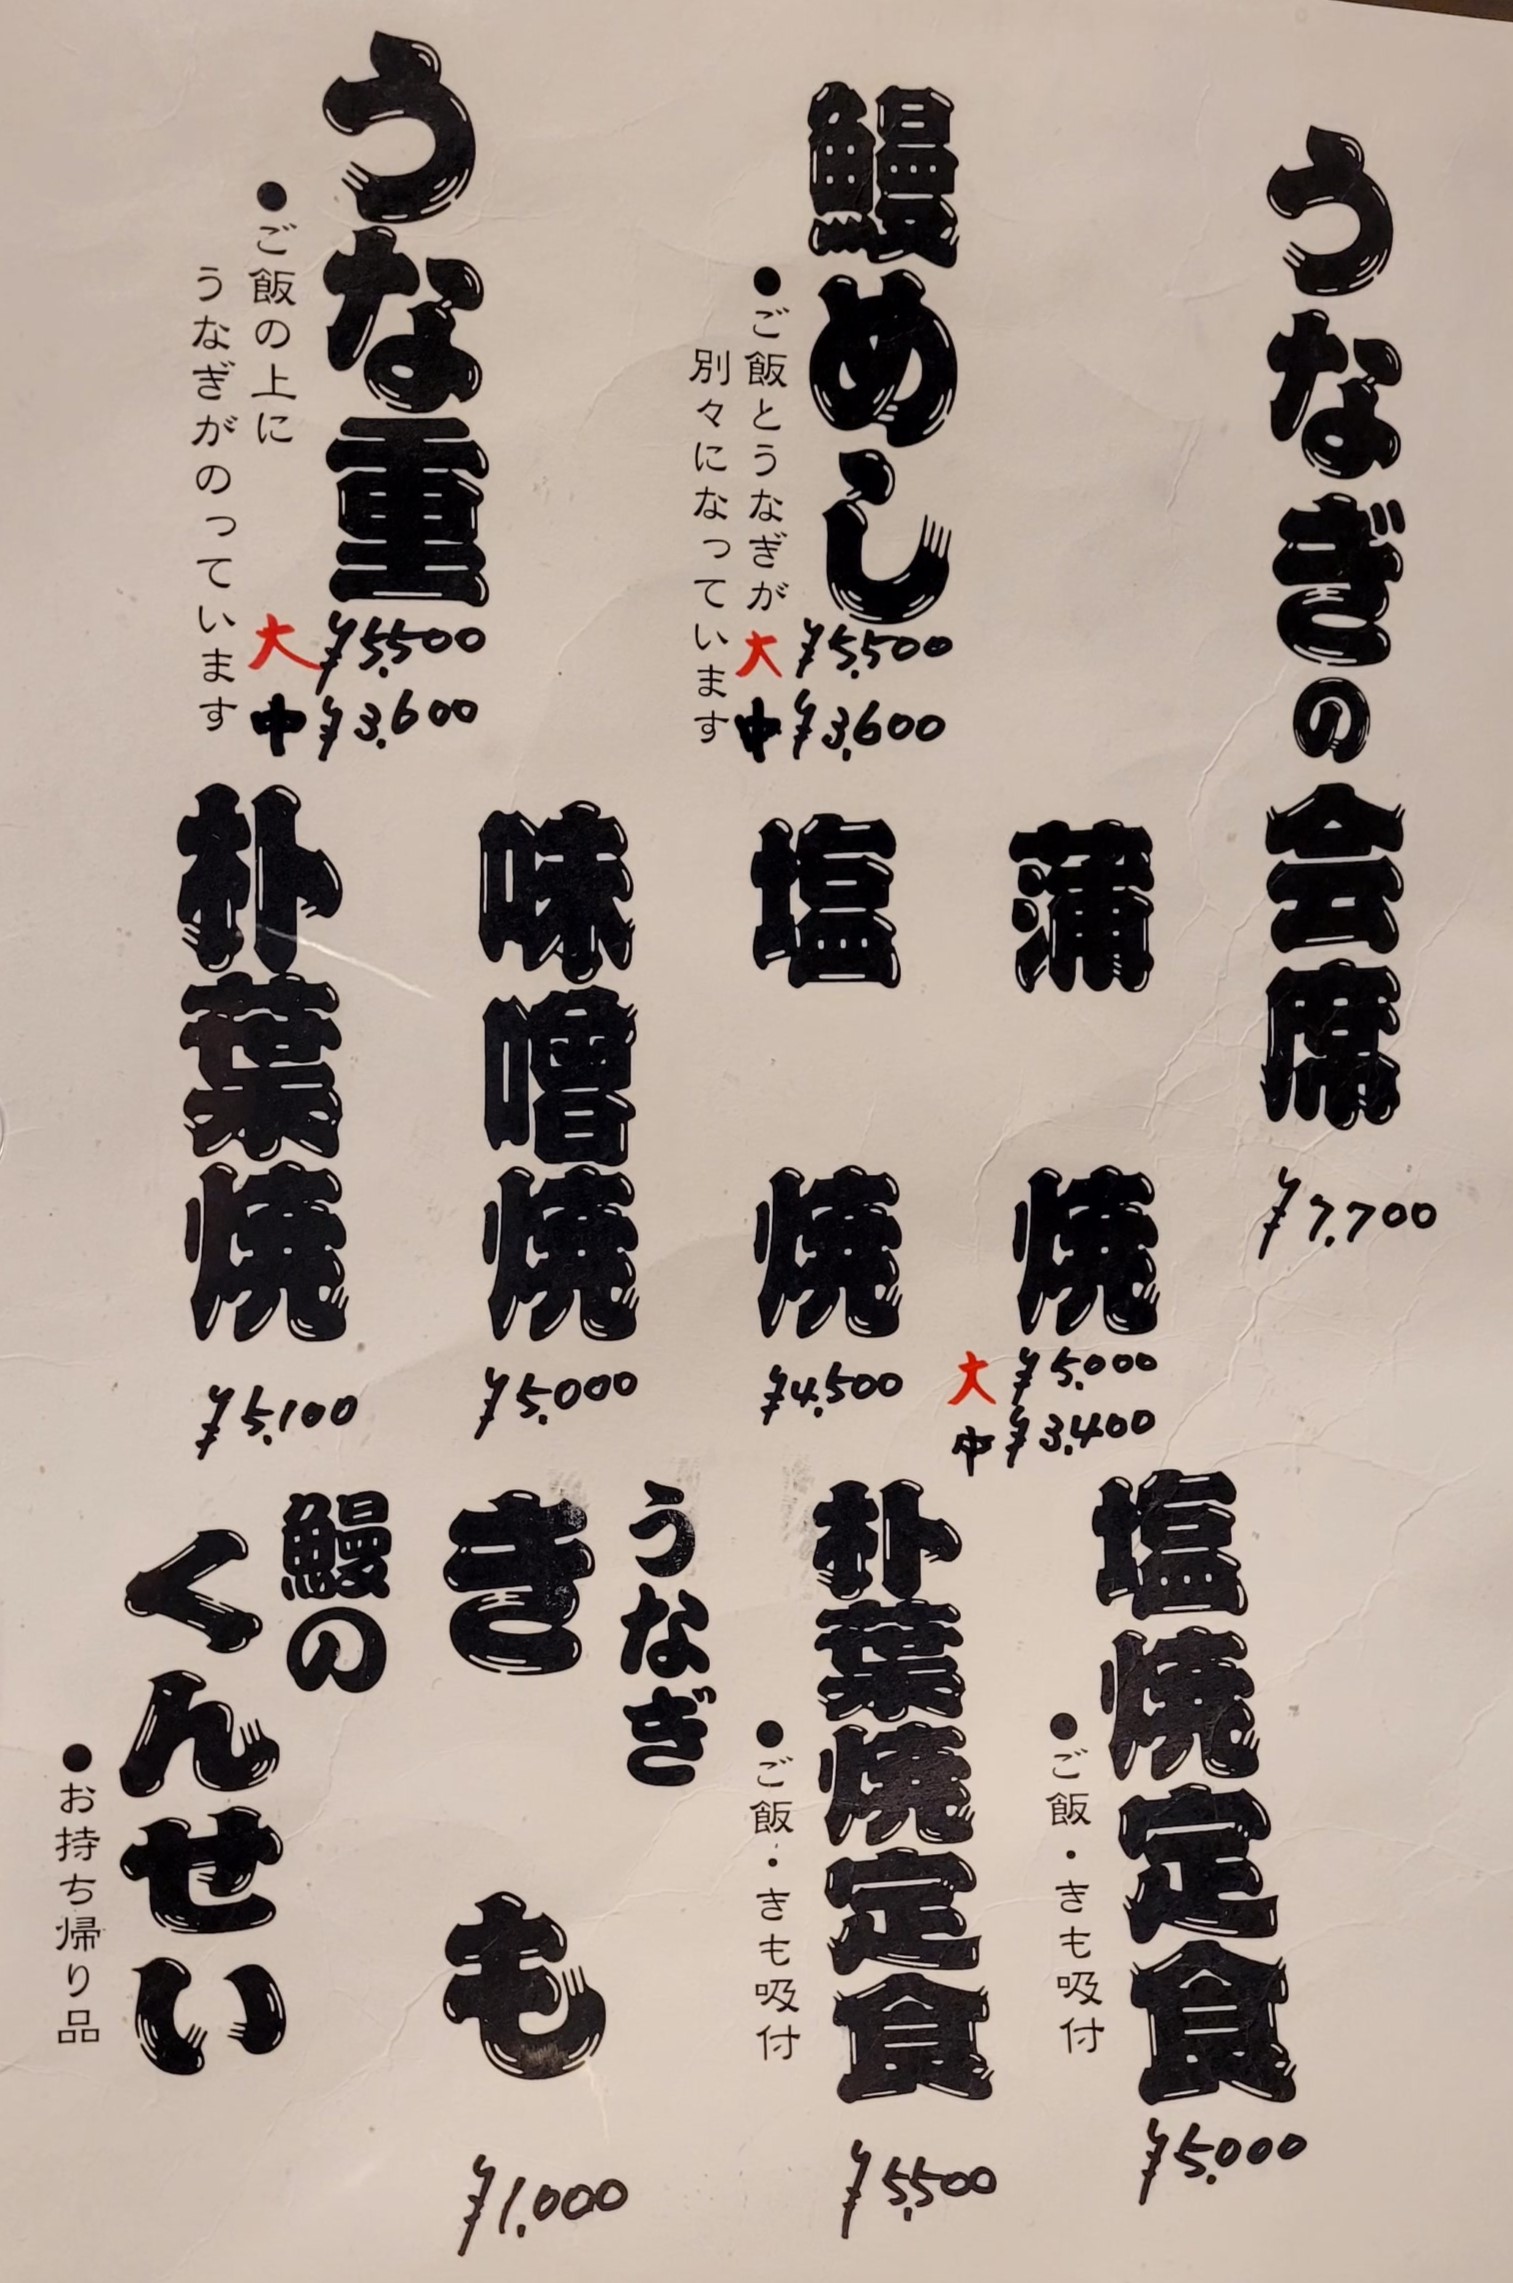 うなぎの会席
¥7,700
鰻めし
●ご飯とうなぎが
別々になっています
大 ¥5,500
中 ¥3,600
うな重
●ご飯の上に
うなぎがのっています
大 ¥5,500
中 ¥3,600
蒲焼
大 ¥5,000
中 ¥3,400
塩焼
¥4,500
味噌焼
¥5,000
朴葉焼
¥5,100
塩焼定食
●ご飯・きも吸付
¥5,000
朴葉焼定食
●ご飯・きも吸付
¥5,500
うなぎ
きも
¥1,000
鰻の
くんせい
●お持ち帰り品